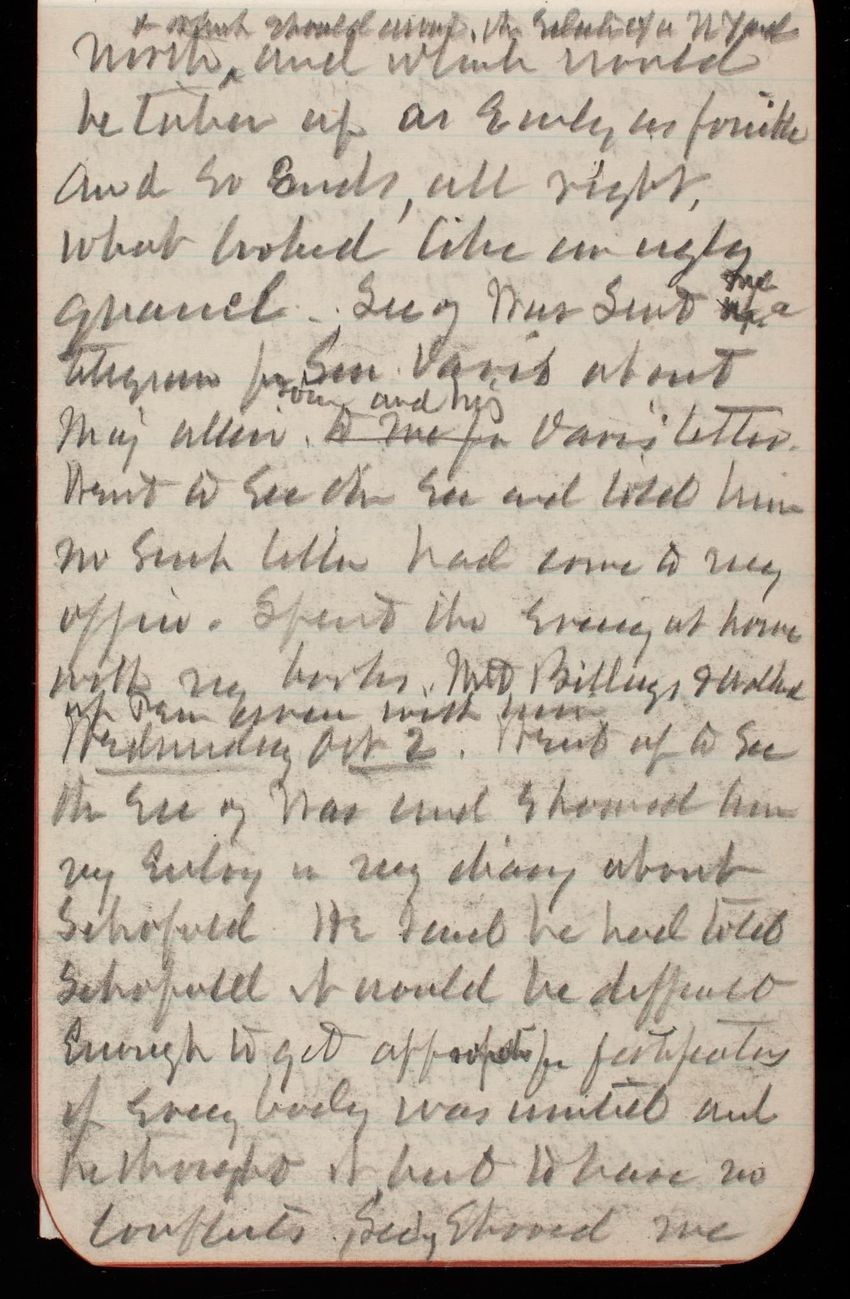 & which should the of a N Y and
North, and which would
be taken up as Early as possible
And so Ends, all right,
what looked like an ugly
quarrel. Secy of War Sent me a
telegram from Sen. Davis about
and his
Maj Allen. to me for Davis' letter.
Went to See the Sec and told him
no Such letter had come to my
office. Spent the Evening at home
with my books. Met Billings & walked
up down with him
Wednesday Oct 2. Went up to See
the Sec of War and Showed him
my Entry in my diary about
Schofield He Said he had told
Schofield it would be difficult
Enough to get for fortifications
if Every body was united and
he thought it best to have no
conflicts. Secy Showed me